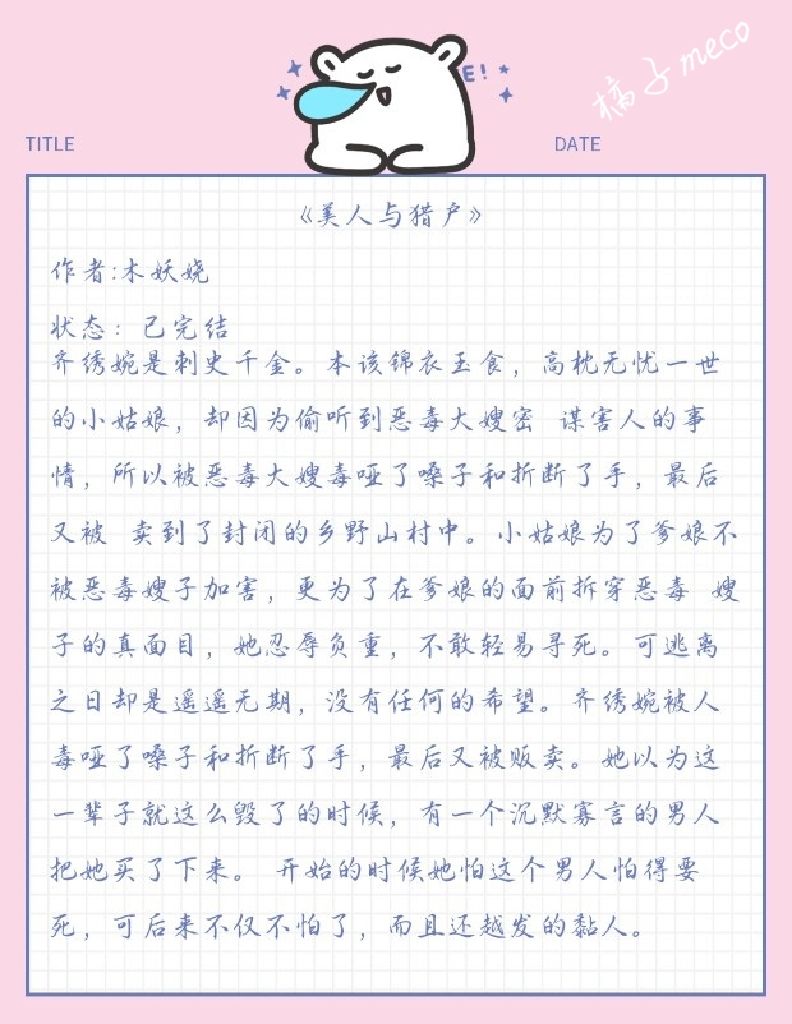 橘子meco
E!
TITLE
DATE
《美人与猎户》
作者:木妖娆
状态：已完结
齐绣婉是刺史千金。本该锦衣玉食，高枕无忧一世
的小姑娘，却因为偷听到恶毒大嫂密 谋害人的事
情，所以被恶毒大嫂毒哑了嗓子和折断了手，最后
又被 卖到了封闭的乡野山村中。小姑娘为了爹娘不
被恶毒嫂子加害，更为了在爹娘的面前拆穿恶毒 嫂
子的真面目，她忍辱负重，不敢轻易寻死。可逃离
之日却是遥遥无期，没有任何的希望。齐绣婉被人
毒哑了嗓子和折断了手，最后又被贩卖。她以为这
一辈子就这么毁了的时候，有一个沉默寡言的男人
把她买了下来。 开始的时候她怕这个男人怕得要
死，可后来不仅不怕了，而且还越发的黏人。